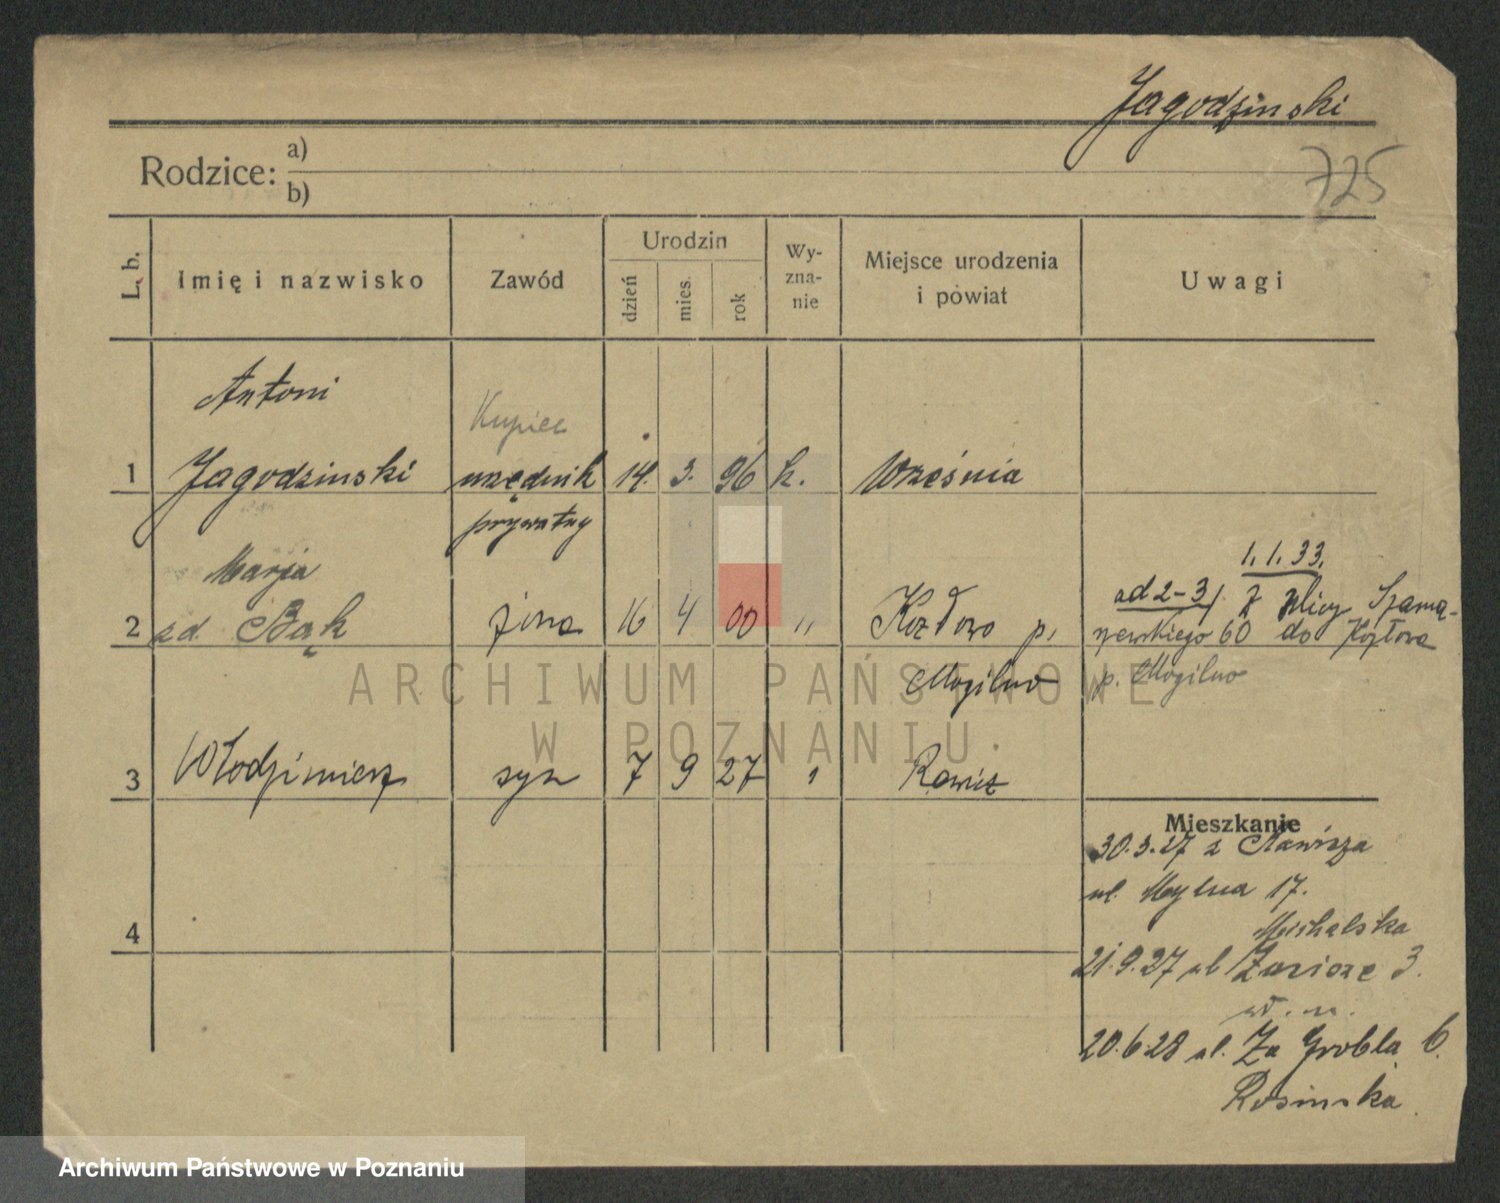 Jagodzinski
725
Rodzice:
a)
b)
L. b.
Imię i nazwisko
Zawód
Urodzin
dzień
mies.
rok
Wy-
zna-
nie
Miejsce urodzenia
i powiat
Uwagi
Antoni
Kupiec
1 Jagodzinski urzędnik 14. 3. 96 k. Września
prywatny
Marja
1.1.33.
ad 2-3/. z ulicy Szama-
2 zd Bąk żona 16 4 00 " Kozłowo p.
rzewskiego 60 do Kozłowa
Mogilno
p. Mogilno
3 Włodzimierz syn 7 9 27 " Rawicz
4
Mieszkanie
30.3.27 z
ul. Mylna 17.
Michalska
21.9.27 ul Zacisze 3.
wł. m.
20.6.28 ul. Za Groblą 6.
Rosinska
ARCHIWUM PAŃSTWOWE
W POZNANIU
Archiwum Państwowe w Poznaniu